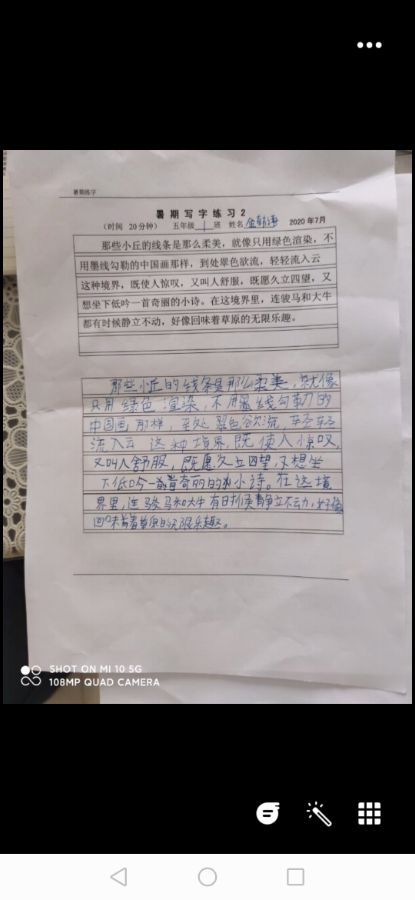 暑期练字
暑期写字练习2
（时间 20分钟） 五年级 1 班 姓名 金 2020年7月
那些小丘的线条是那么柔美，就像只用绿色渲染，不
用墨线勾勒的中国画那样，到处翠色欲流，轻轻流入云
这种境界，既使人惊叹，又叫人舒服，既愿久立四望，又
想坐下低吟一首奇丽的小诗。在这境界里，连骏马和大牛
都有时候静立不动，好像回味着草原的无限乐趣。
那些小丘的线条是那么柔美，就像
只用绿色渲染，不用墨线勾勒的
中国画那样，到处翠色欲流，轻轻
流入云 这种境界，既使人惊叹，
又叫人舒服，既愿久立四望，又想坐
下低吟一首奇丽的小诗。在这境
界里，连骏马和大牛有时候静立不动，好像
回味着草原的无限乐趣。
SHOT ON MI 10 5G
108MP QUAD CAMERA